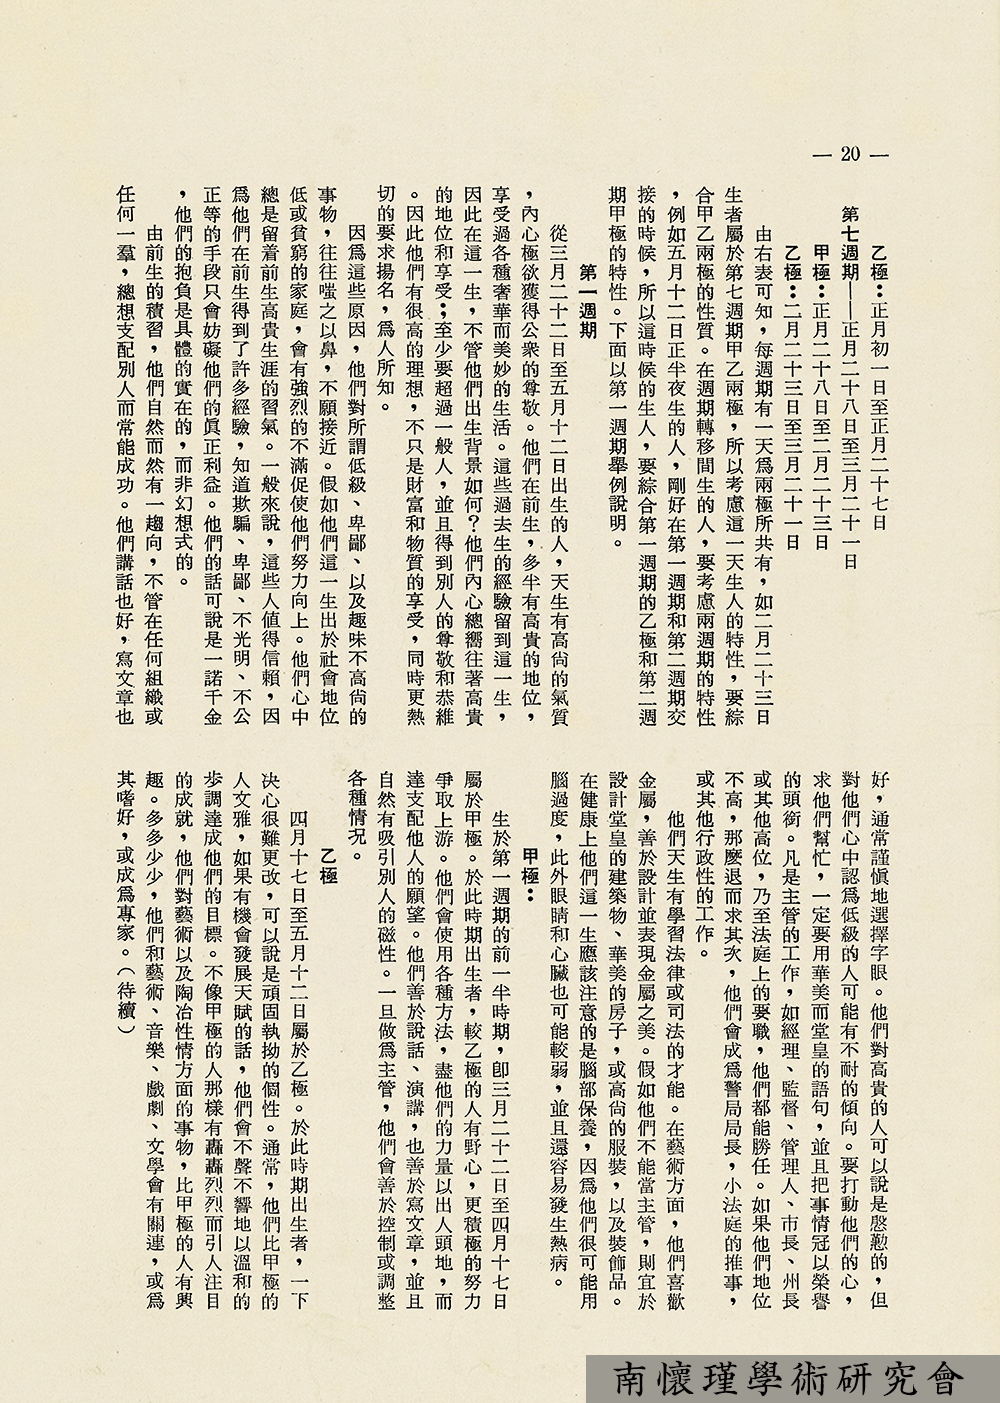 — 20 —
乙極：正月初一日至正月二十七日
第七週期——正月二十八日至三月二十一日
甲極：正月二十八日至二月二十三日
乙極：二月二十三日至三月二十一日
由右表可知，每週期有一天爲兩極所共有，如二月二十三日
生者屬於第七週期甲乙兩極，所以考慮這一天生人的特性，要綜
合甲乙兩極的性質。在週期轉移間生的人，要考慮兩週期的特性
，例如五月十二日正半夜生的人，剛好在第一週期和第二週期交
接的時候，所以這時候的生人，要綜合第一週期的乙極和第二週
期甲極的特性。下面以第一週期舉例說明。
第一週期
從三月二十二日至五月十二日出生的人，天生有高尙的氣質
，內心極欲獲得公衆的尊敬。他們在前生，多半有高貴的地位，
享受過各種奢華而美妙的生活。這些過去生的經驗留到這一生，
因此在這一生，不管他們出生背景如何？他們內心總嚮往著高貴
的地位和享受；至少要超過一般人，並且得到別人的尊敬和恭維
。因此他們有很高的理想，不只是財富和物質的享受，同時更熱
切的要求揚名，爲人所知。
因爲這些原因，他們對所謂低級、卑鄙、以及趣味不高尙的
事物，往往嗤之以鼻，不願接近。假如他們這一生出於社會地位
低或貧窮的家庭，會有強烈的不滿促使他們努力向上。他們心中
總是留着前生高貴生涯的習氣。一般來說，這些人値得信賴，因
爲他們在前生得到了許多經驗，知道欺騙、卑鄙、不光明、不公
正等的手段只會妨礙他們的眞正利益。他們的話可說是一諾千金
，他們的抱負是具體的實在的，而非幻想式的。
由前生的積習，他們自然而然有一趨向，不管在任何組織或
任何一羣，總想支配別人而常能成功。他們講話也好，寫文章也
好，通常謹愼地選擇字眼。他們對高貴的人可以說是慇懃的，但
對他們心中認爲低級的人可能有不耐的傾向。要打動他們的心，
求他們幫忙，一定要用華美而堂皇的語句，並且把事情冠以榮譽
的頭銜。凡是主管的工作，如經理、監督、管理人、市長、州長
或其他高位，乃至法庭上的要職，他們都能勝任。如果他們地位
不高，那麽退而求其次，他們會成爲警局局長，小法庭的推事，
或其他行政性的工作。
他們天生有學習法律或司法的才能。在藝術方面，他們喜歡
金屬，善於設計並表現金屬之美。假如他們不能當主管，則宜於
設計堂皇的建築物、華美的房子，或高尙的服裝，以及裝飾品。
在健康上他們這一生應該注意的是腦部保養，因爲他們很可能用
腦過度，此外眼睛和心臟也可能較弱，並且還容易發生熱病。
甲極：
生於第一週期的前一半時期，卽三月二十二日至四月十七日
屬於甲極。於此時期出生者，較乙極的人有野心，更積極的努力
爭取上游。他們會使用各種方法，盡他們的力量以出人頭地，而
達支配他人的願望。他們善於說話、演講，也善於寫文章，並且
自然有吸引別人的磁性。一旦做爲主管，他們會善於控制或調整
各種情况。
乙極
四月十七日至五月十二日屬於乙極。於此時期出生者，一下
决心很難更改，可以說是頑固執拗的個性。通常，他們比甲極的
人文雅，如果有機會發展天賦的話，他們會不聲不響地以溫和的
步調達成他們的目標。不像甲極的人那樣有轟轟烈烈而引人注目
的成就，他們對藝術以及陶冶性情方面的事物，比甲極的人有興
趣。多多少少，他們和藝術、音樂、戲劇、文學會有關連，或爲
其嗜好，或成爲專家。（待續）
南懷瑾學術研究會